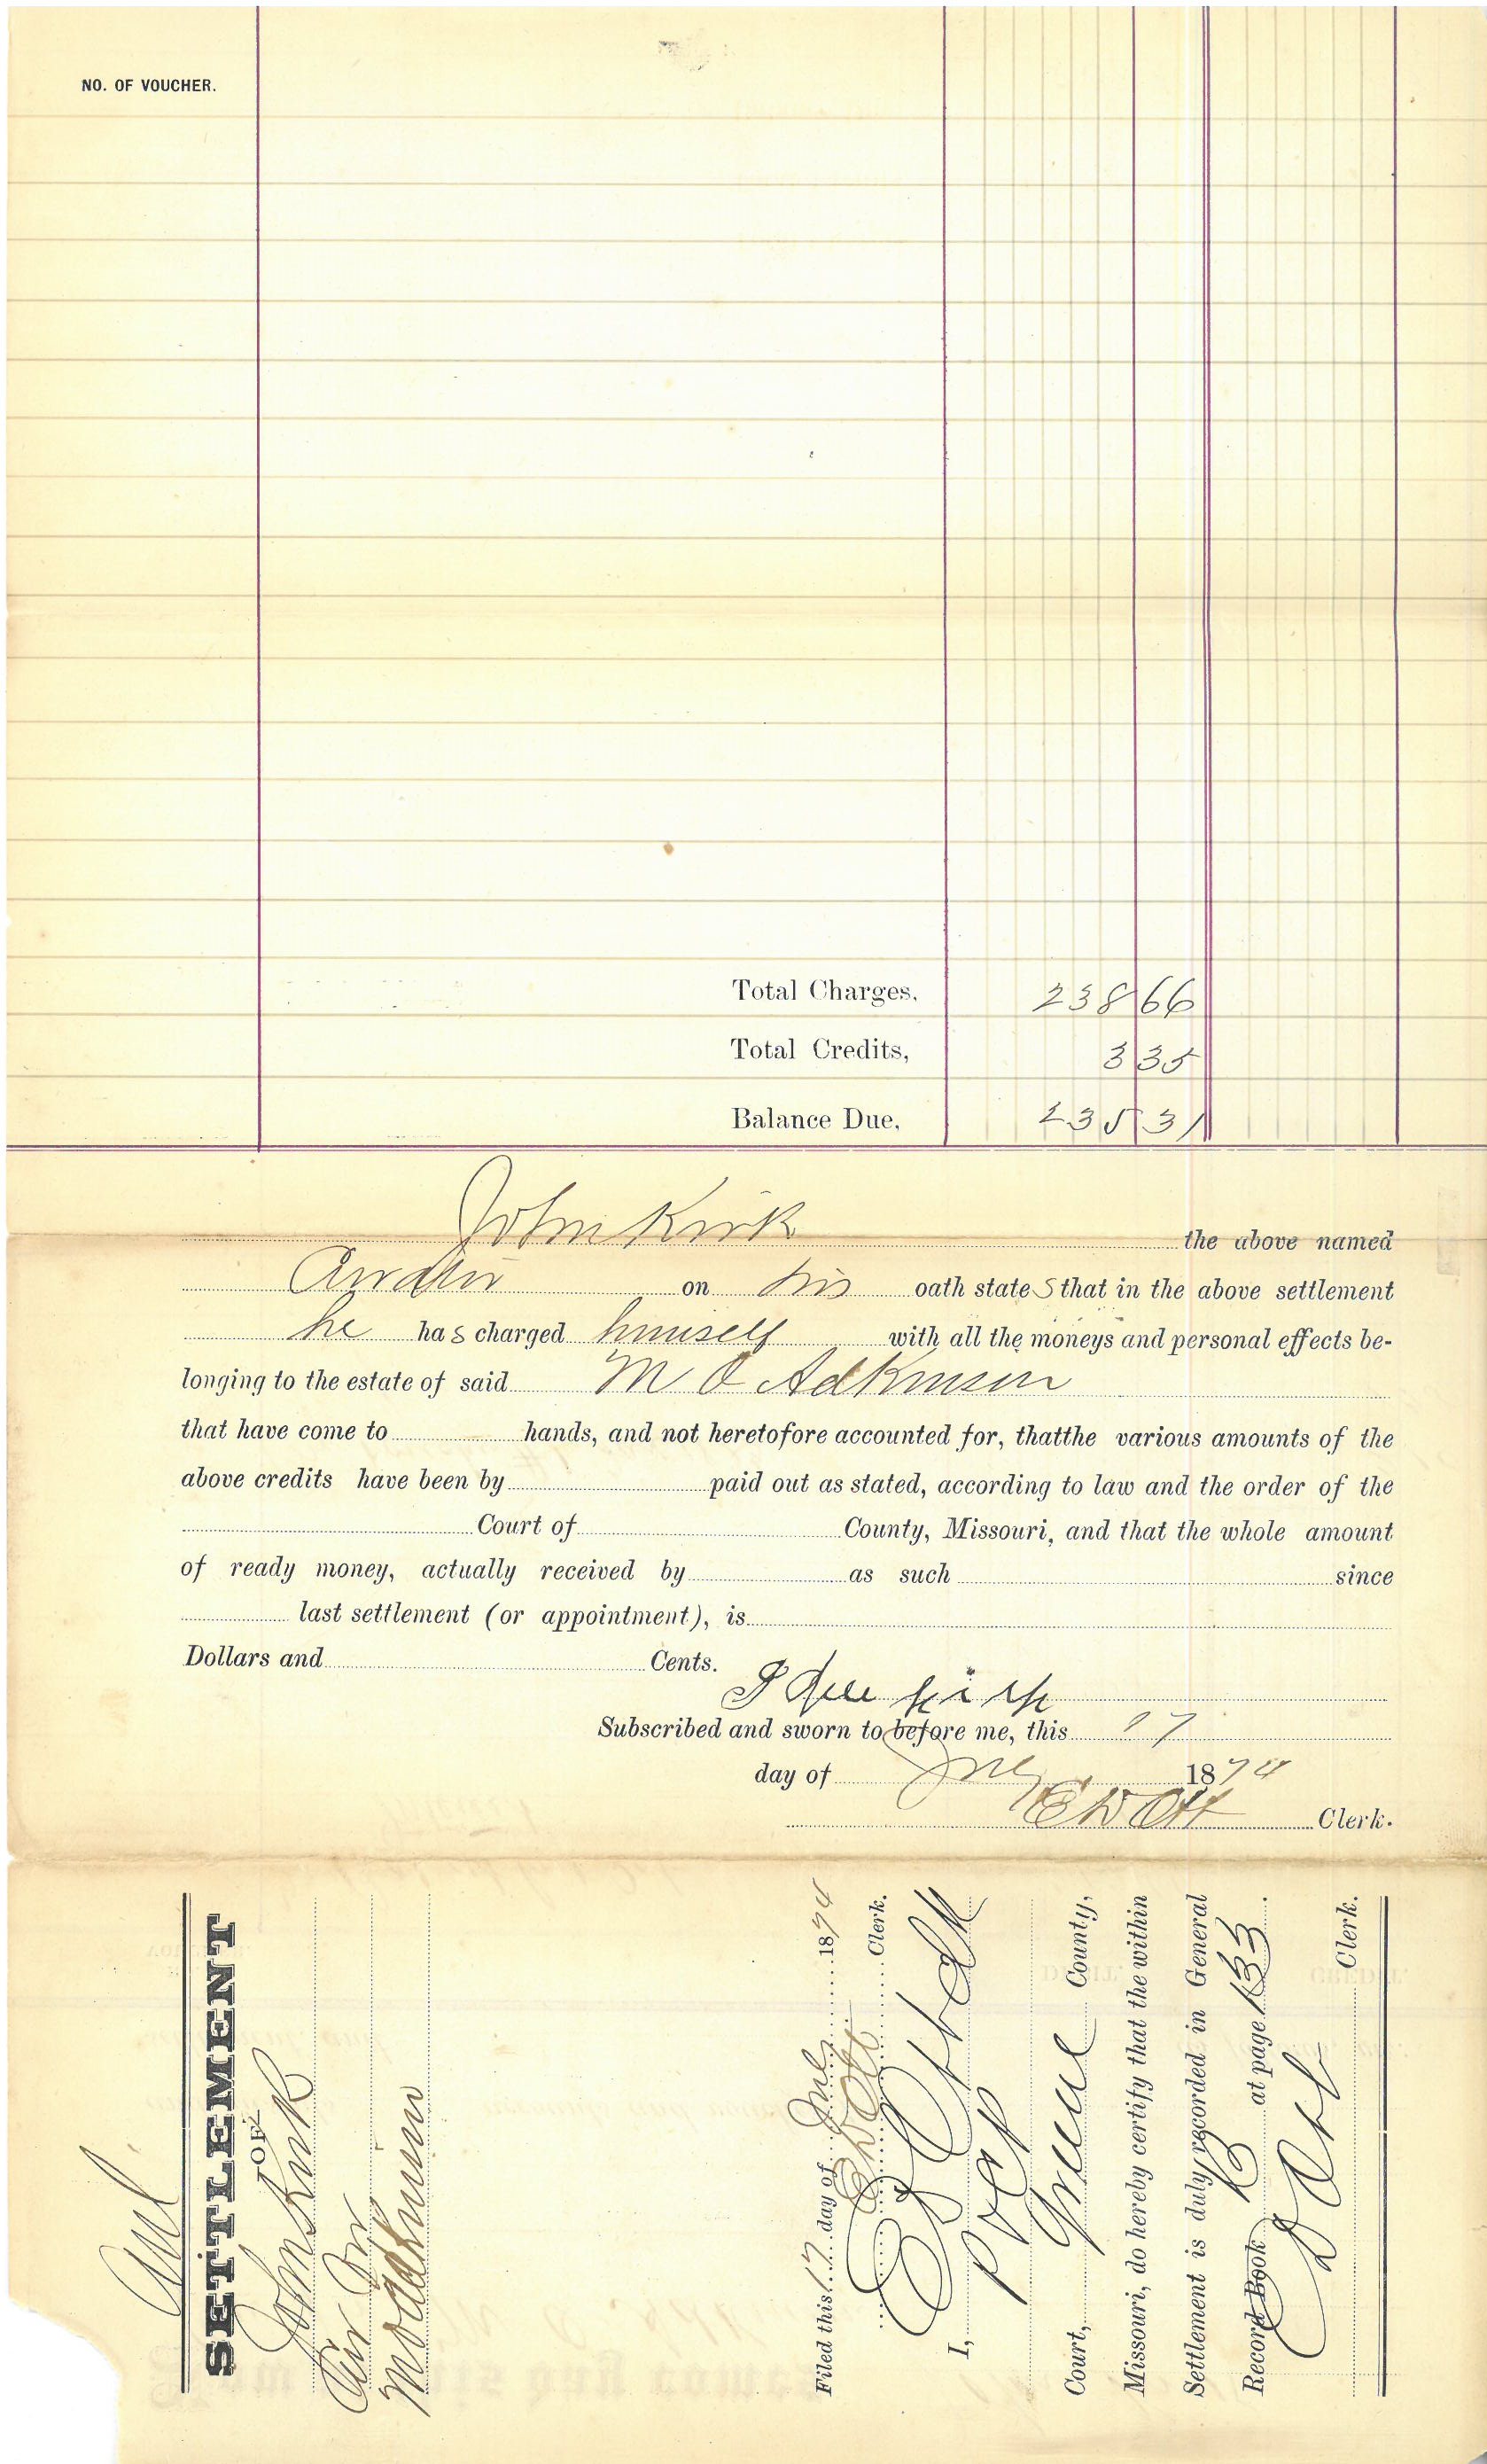 NO. OF VOUCHER.
Total Charges, 238 66
Total Credits, 3 35
Balance Due, 235 31
John Kirk the above named
on his oath state s that in the above settlement
he has charged himself with all the moneys and personal effects be-
longing to the estate of said M O Adkinson
that have come to hands, and not heretofore accounted for, thatthe various amounts of the
above credits have been by paid out as stated, according to law and the order of the
Court of County, Missouri, and that the whole amount
of ready money, actually received by as such since
last settlement (or appointment), is
Dollars and Cents.
John Kirk
Subscribed and sworn to before me, this 17
day of 1874
E D Ott Clerk.
SETTLEMENT
OF
John Kirk
Filed this 17 day of 1874
E D Ott Clerk.
I, E D Ott Clk
Court, Greene County,
Missouri, do hereby certify that the within
Settlement is duly recorded in General
Record Book B at page 133.
E D Ott
Clerk.